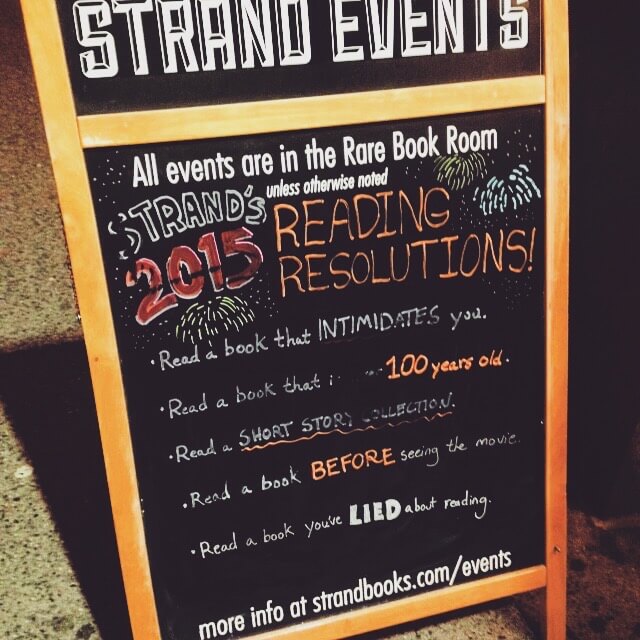 STRAND EVENTS
All events are in the Rare Book Room
unless otherwise noted
STRAND'S
2015
READING
RESOLUTIONS!
• Read a book that INTIMIDATES you.
• Read a book that 100 years old.
• Read a SHORT STORY COLLECTION.
• Read a book BEFORE seeing the movie.
• Read a book you've LIED about reading.
more info at strandbooks.com/events